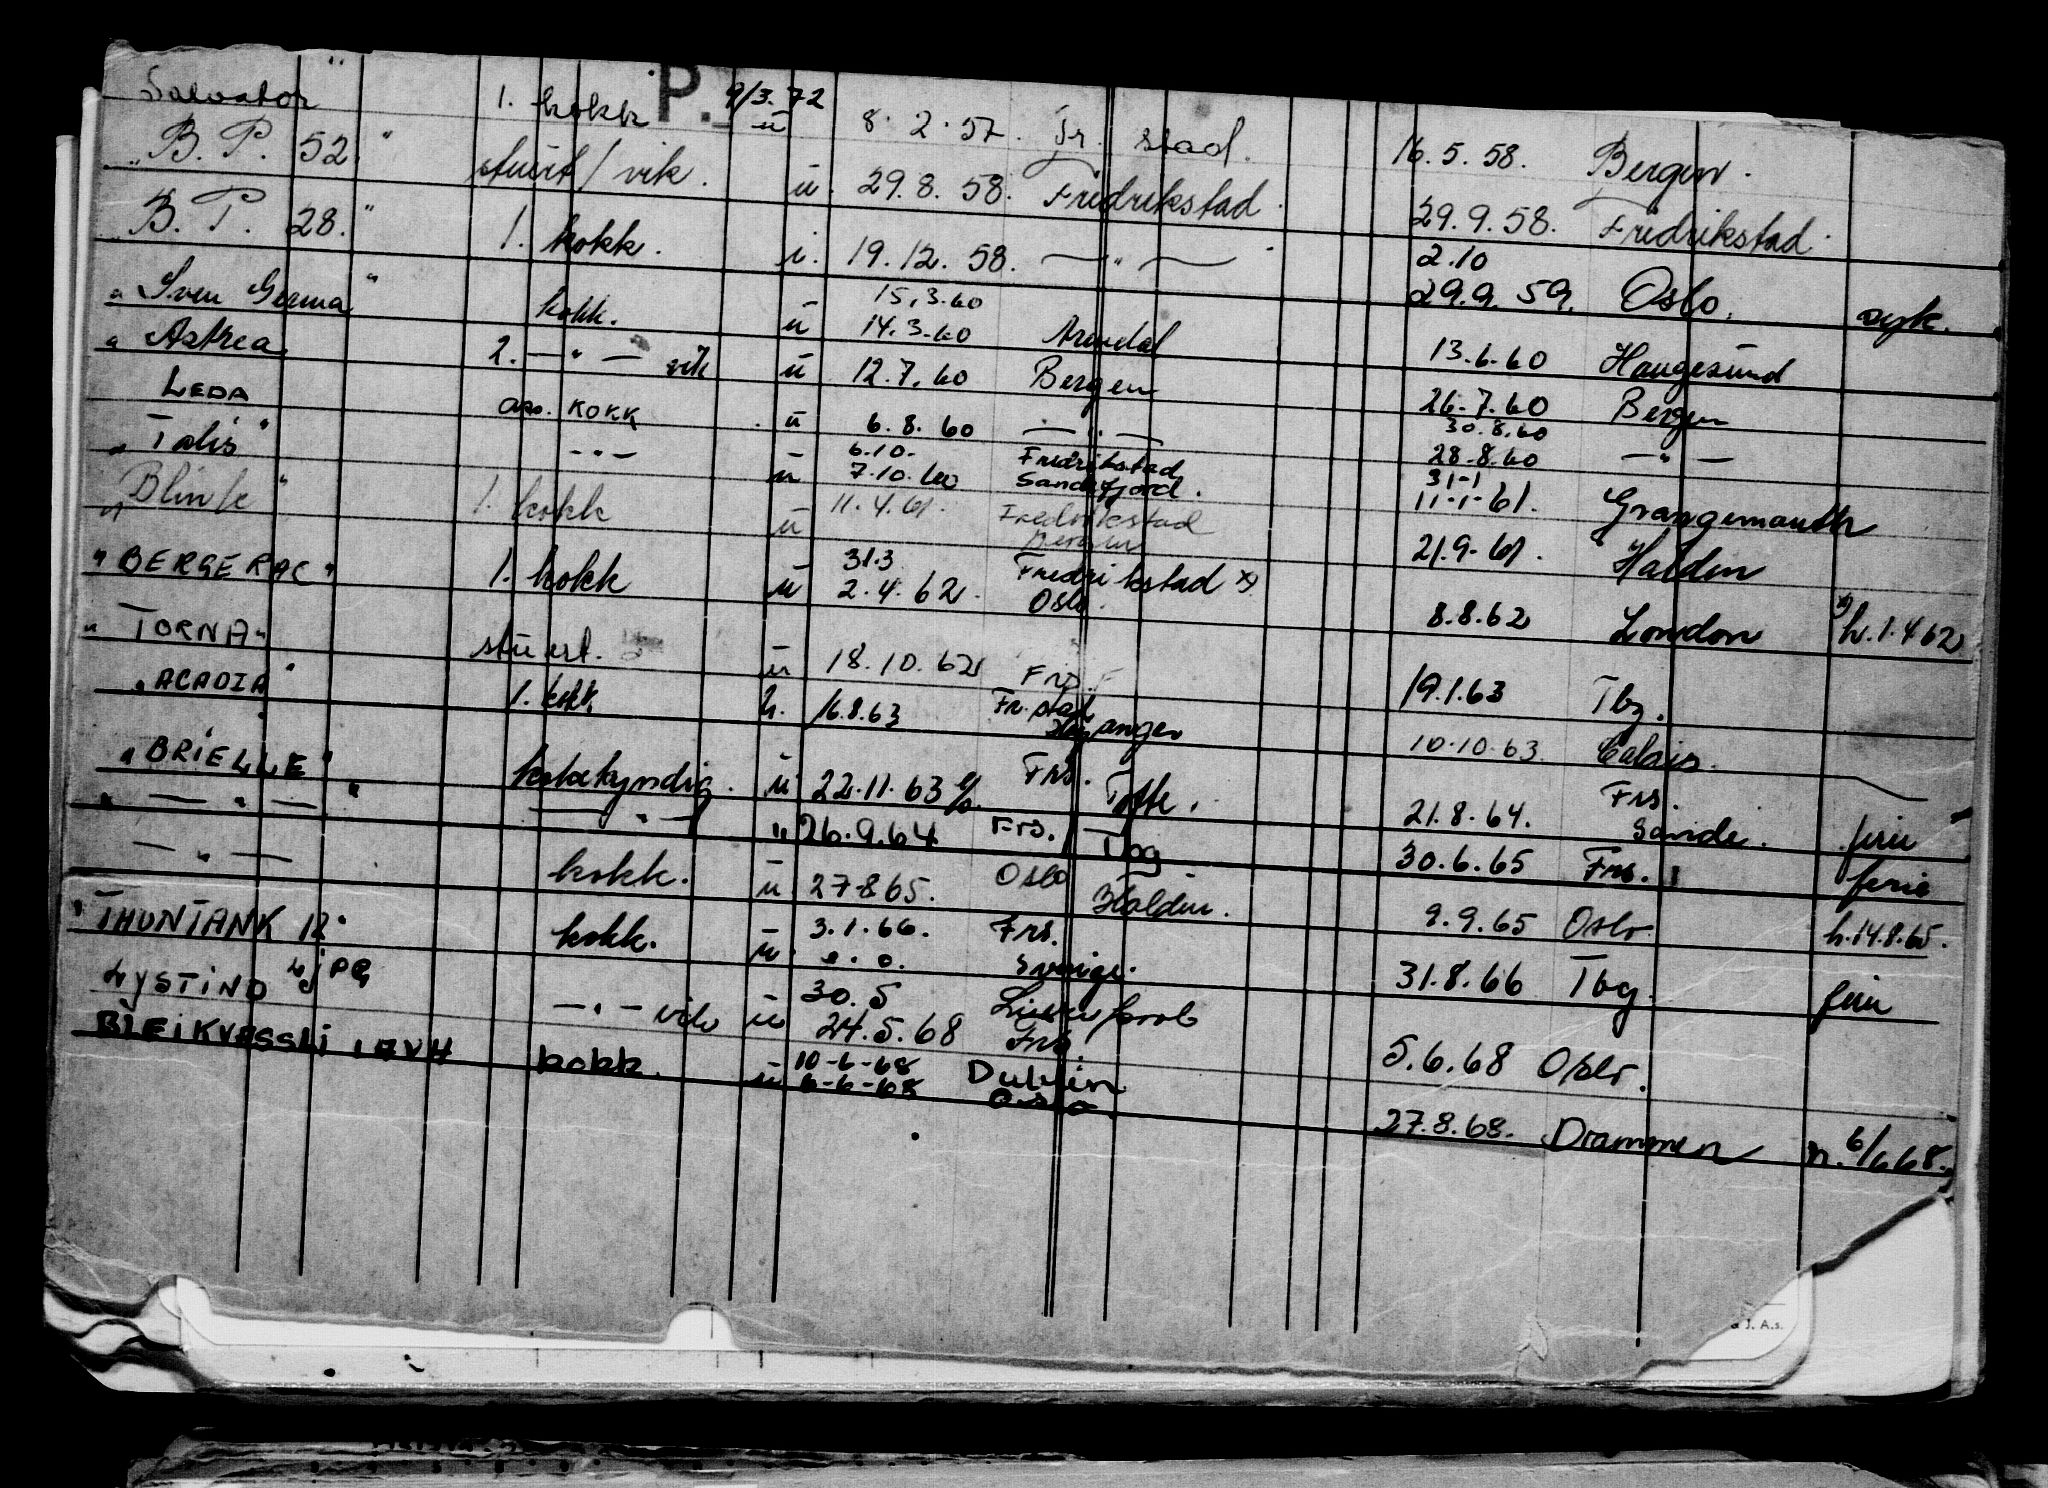 Salvator " 1. kokk P. 9/3.72 u 8.2.57. Fr. stad. 16.5.58. Bergen.
"B.P. 52." stuert/vik. u. 29.8.58. Fredrikstad. 29.9.58. Fredrikstad.
B.P. 28." 1. kokk. u. 19.12.58. —"— 2.10
29.9.59. Oslo. syk.
"Sven Germa" kokk. u 15.3.60
14.3.60 Arendal 13.6.60 Haugesund
"Astrea 2. —"— vik u 12.7.60 Bergen 26.7.60 Bergen
LEDA ass. KOKK u 6.8.60 —"— 30.8.60
28.8.60 —"—
"Talis" —"— u 6.10. Fredrikstad
7.10.60 Sandefjord. 31-1
11-1-61. Grangemouth
"Blink" 1. kokk u 11.4.61. Fredrikstad
Bergen 21.9.61. Halden
"BERGERAC" 1. kokk u 31.3 Fredrikstad x)
2.4.62. Oslo. 8.8.62 London x) h.1.4.62
"TORNA" stuert. u 18.10.62 Frs. 19.1.63 Tbg.
"ACADIA" 1. kokk h. 16.8.63 Fr. stad
Høyanger 10.10.63. Calais.
"BRIELLE" kokekyndig. u 22.11.63 Frs. Tofte. 21.8.64. Frs.
Sande. ferie
"—"—" —"— " 26.9.64 Frs. Tbg 30.6.65 Frs. ferie
—"— kokk. u. 27.8.65. Oslo Halden. 9.9.65 Oslo. h.14.8.65.
"THUNTANK 12" kokk. u. 3.1.66. Frs.
Sverige. 31.8.66 Tbg. ferie
LYSTIND LJPQ —"— vik u 30.5
24.5.68 Frs. 5.6.68 Oslo.
BLEIKVASSLI kokk. u 10-6-68 Dublin
6-6-68 Oslo 27.8.68. Drammen h. 6/6 68.
J. A.s.